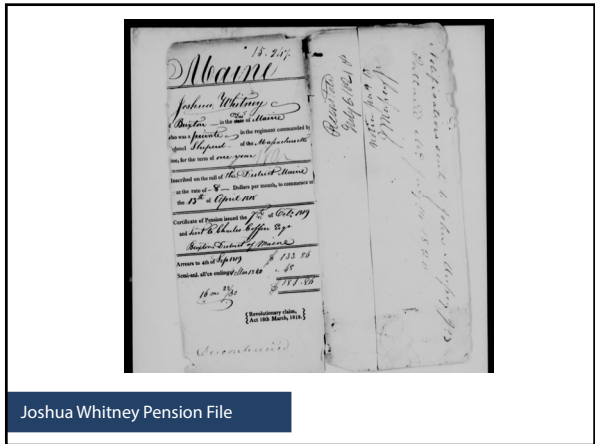 15.247
Maine
Joshua Whitney
Buxton in the state of Maine
who was a private in the regiment commanded by
Shepard of the Massachusetts
line, for the term of one year
Inscribed on the roll of the District Maine
at the rate of 8 Dollars per month, to commence on
the 13th of April 1818
Certificate of Pension issued the 7th of Oct. 1819
and sent to Charles Coffin Esqr
Buxton District of Maine
Arrears to 4th of Sep 1819 $ 133.86
Semi-anl. all'ce ending 4 Mar 1820 48
$ 181.86
16 mo
{Revolutionary claim,
Act 18th March, 1818.}
Discontinued
Notification sent to John
July 1824
Joshua Whitney Pension File